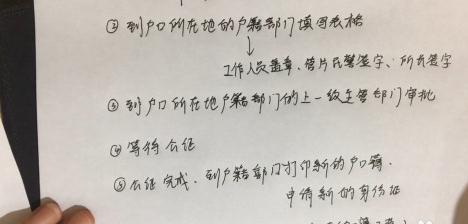 ② 到户口所在地的户籍部门填写表格
↓
工作人员盖章、管片民警签字、所长签字
③ 到户口所在地户籍部门的上一级主管部门审批
④ 等待公证
⑤ 公证完成、到户籍部门打印新的户口簿、
申请新的身份证